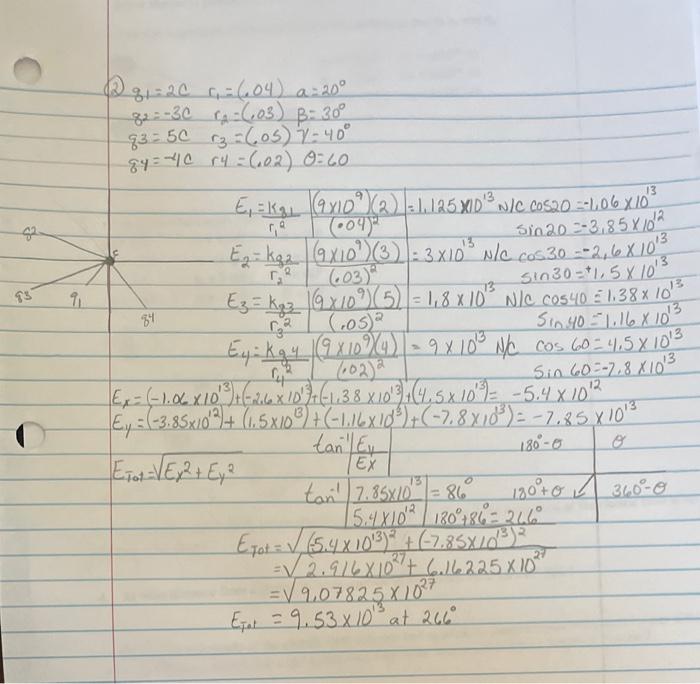 ② q1=2C r₁=(.04) a=20°
q2=-3C r₂=(.03) β=30°
q3=5C r3=(.05) γ=40°
q4=-4C r4=(.02) θ=60
E₁=kq1/r₁² |(9x10⁹)(2)/(.04)²| =1.125x10¹³ N/C cos20=-1.06x10¹³
sin20=-3.85x10¹²
q2
E₂=kq2/r₂² |(9x10⁹)(3)/(.03)²| =3x10¹³ N/C cos30=-2.6x10¹³
sin30=+1.5x10¹³
q3 q1 q4
E₃=kq3/r₃² |(9x10⁹)(5)/(.05)²| =1.8x10¹³ N/C cos40=1.38x10¹³
Sin40=1.16x10¹³
E₄=kq4/r₄² |(9x10⁹)(4)/(.02)²| =9x10¹³ N/C cos 60=4.5x10¹³
Sin 60=-7.8x10¹³
Ex=(-1.06x10¹³)+(-2.6x10¹³)+(-1.38x10¹³)+(4.5x10¹³)= -5.4x10¹²
Ey=(-3.85x10¹²)+(1.5x10¹³)+(-1.16x10¹³)+(-7.8x10¹³)= -7.85x10¹³
tan⁻¹|Ey/Ex| 180°-θ θ
ETot=√Ex²+Ey²
tan⁻¹|7.85x10¹³/5.4x10¹²|=86° 180°+θ 360°-θ
180°+86°=266°
ETot=√(-5.4x10¹³)²+(-7.85x10¹³)²
=√2.916x10²⁷+6.16225x10²⁷
=√9.07825x10²⁷
ETot =9.53x10¹³ at 266°